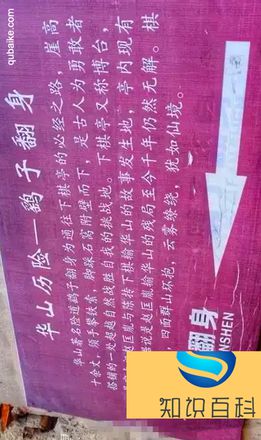 qubaike.com
华山历险—鹞子翻身
华山著名险道鹞子翻身为通往下棋亭的必经之路，崖高
十余丈，须手攀铁索，脚踩石窝附壁而下，是古人为勇敢者
搭铺的一条超越自然战胜自我的挑战地。下棋亭又称博台，
赵匡胤与陈抟下棋输华山的故事发生地，亭内现有
说是赵匡胤输华山的残局至今千年仍然无解。棋
四面群山环抱，云雾缭绕，犹如仙境。
翻身
NSHEN
知识百科